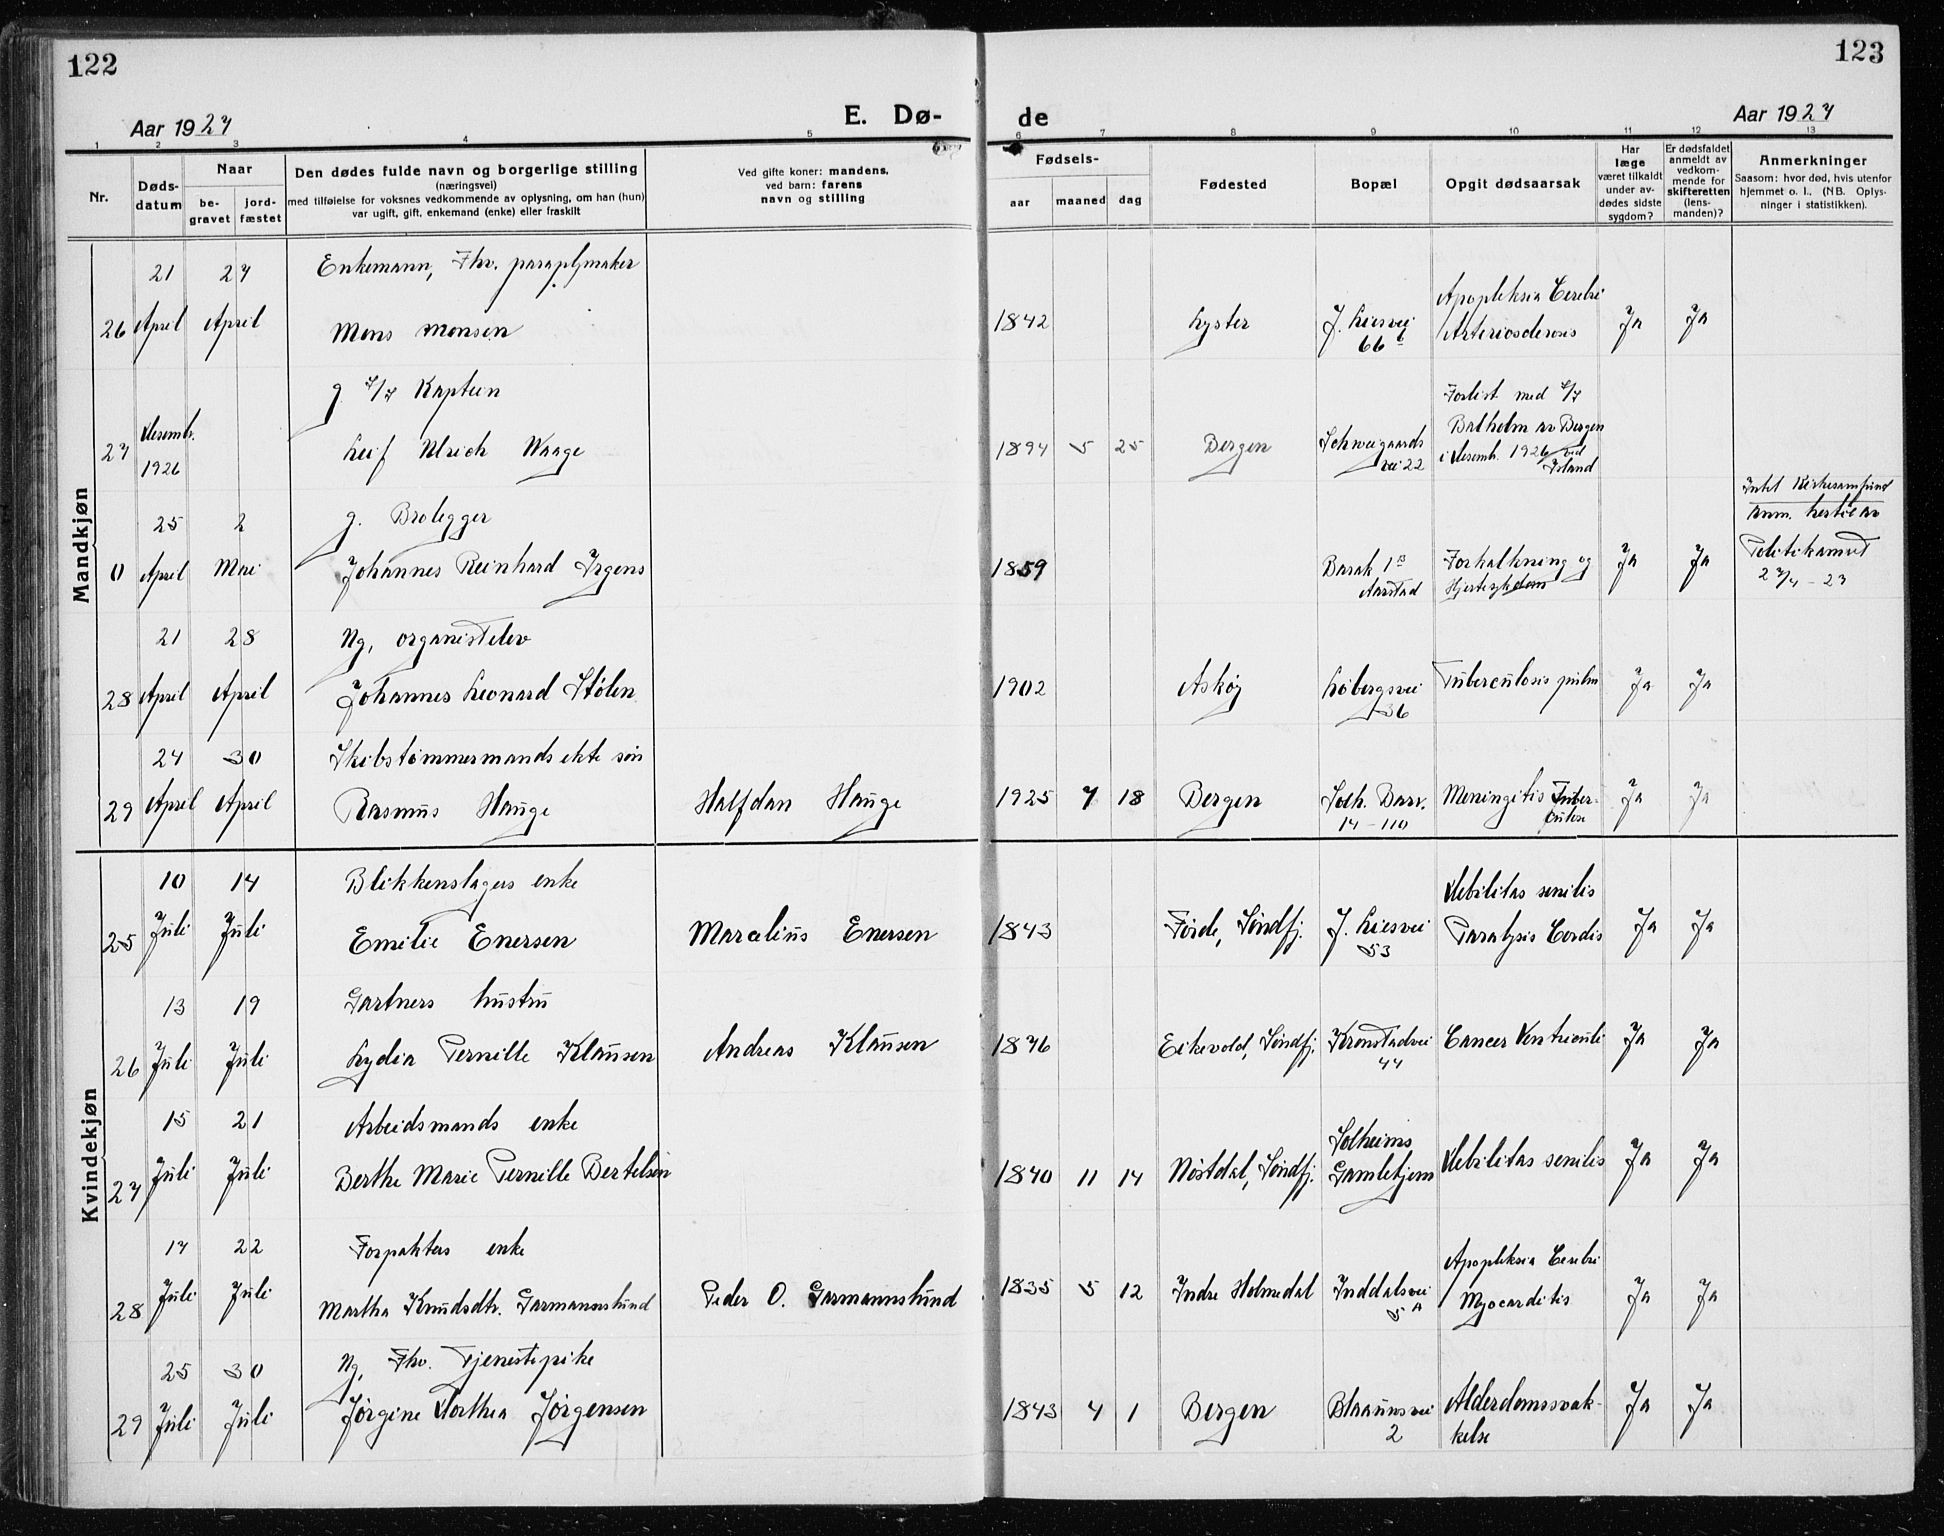 122
123
Aar 1927
E. Dø-
de
Aar 1927
1 2 3 4 5 6 7 8 9 10 11 12 13
Nr.
Døds-
datum
Naar
be-
gravet
jord-
fæstet
Den dødes fulde navn og borgerlige stilling
(næringsvei)
med tilføielse for voksnes vedkommende av oplysning, om han (hun)
var ugift, gift, enkemand (enke) eller fraskilt
Ved gifte koner: mandens,
ved barn: farens
navn og stilling
Fødsels-
aar
maaned
dag
Fødested
Bopæl
Opgit dødsaarsak
Har
læge
været tilkaldt
under av-
dødes sidste
sygdom?
Er dødsfaldet
anmeldt av
vedkom-
mende for
skifteretten
(lens-
manden)?
Anmerkninger
Saasom: hvor død, hvis utenfor
hjemmet o. l., (NB. Oplys-
ninger i statistikken).
Mandkjøn
21 27 Enkemann, Fhv. paraplymaker
26 April April Mons Monsen 1842 Lyster J. Liesvei 66 b Apopleksia Cerebri Arteriosclerosis Ja Ja
g. Kaptein
27 Desembr. 1926 Leif Ulrich Waage 1894 5 25 Bergen Schweigaards vei 22 Forlist med S/S Balholm av Bergen i Desemb. 1926 ved Island
25 2 g. Brolegger
0 April Mai Johannes Reinhard Irgens 1859 Barak 1 B Aarstad Forkalkning og Hjertesykdom Ja Ja Intet Kirkesamfund Anm. hertil av Politikamret 27/4 - 23
21 28 Ug, organistelev
28 April April Johannes Leonard Stølen 1902 Askøy Løbergsvei 36 Tuberculosis pulm Ja Ja
24 30 Skibstømmermands ekte søn
29 April April Rasmus Hauge Halfdan Hauge 1925 7 18 Bergen Solh. Barr. 14 - 110 Meningitis Tuber- culose Ja Ja
Kvindekjøn
10 14 Blikkenslagers enke
25 Juli Juli Emilie Enersen Marcelius Enersen 1843 Førde, Søndfj. J. Liesvei 53 Debilitas senilis Paralysis Cordis Ja Ja
13 19 Gartners hustru
26 Juli Juli Lydia Pernille Klausen Andreas Klausen 1876 Eikevold, Søndfj. Kronstadvei 44 Cancer Ventriculi Ja Ja
15 21 Arbeidsmands enke
27 Juli Juli Berthe Marie Pernille Bertelsen 1840 11 14 Nøstdal, Søndfj. Solheims Gamlehjem Debilitas senilis Ja Ja
17 22 Forpakters enke
28 Juli Juli Martha Knudsdtr. Garmannslund Peder O. Garmannslund 1835 5 12 Indre Holmedal Inddalsvei 5 A Apopleksia Cerebri Myocarditis Ja Ja
25 30 Ug, Fhv. Tjenestepike
29 Juli Juli Jørgine Dorthea Jørgensen 1843 4 1 Bergen Blaaunsvei 2 Alderdomssvak- kelse Ja Ja